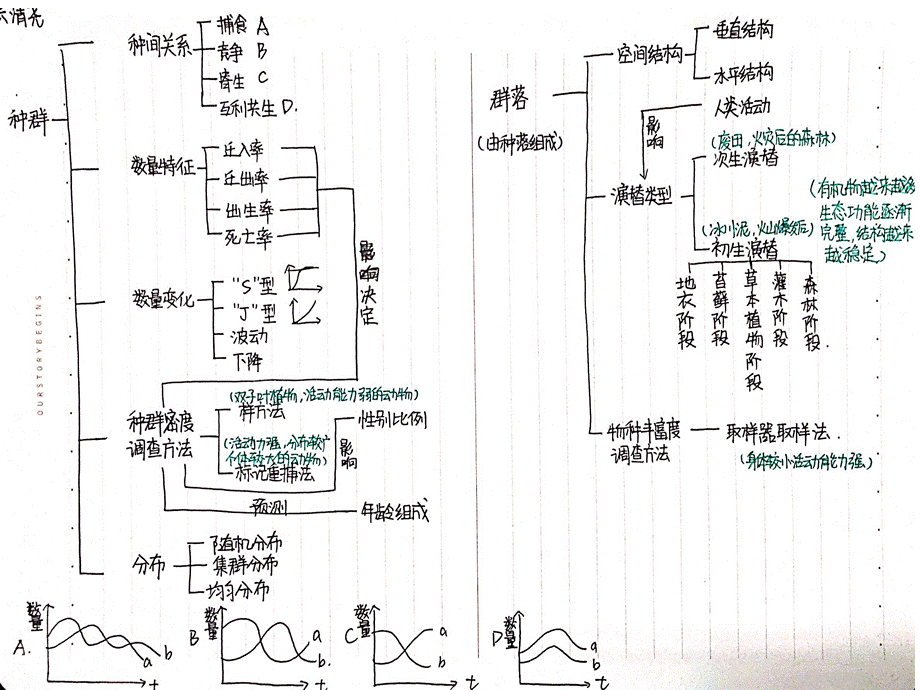 种群
种间关系
捕食 A
竞争 B
寄生 C
互利共生 D.
数量特征
迁入率
迁出率
出生率
死亡率
影响决定
数量变化
"S"型
"J"型
波动
下降
OURSTORYBEGINS
种群密度
调查方法
(双子叶植物,活动能力弱的动物)
样方法
(活动力强,分布较广
个体较大的动物)
标记重捕法
性别比例
影响
预测
年龄组成
分布
随机分布
集群分布
均匀分布
A.
数量
a
b
t
B
数量
a
b.
t
C
数量
a
b
t
D
数量
a
b
t
群落
(由种落组成)
空间结构
垂直结构
水平结构
人类活动
影响
演替类型
(废田,火灾后的森林)
次生演替
(有机物越来越多
生态功能逐渐
完整,结构越来
越稳定)
(冰川泥,火山爆发后)
初生演替
地衣阶段
苔藓阶段
草本植物阶段
灌木阶段
森林阶段.
物种丰富度
调查方法
取样器取样法.
(身体较小活动能力强)